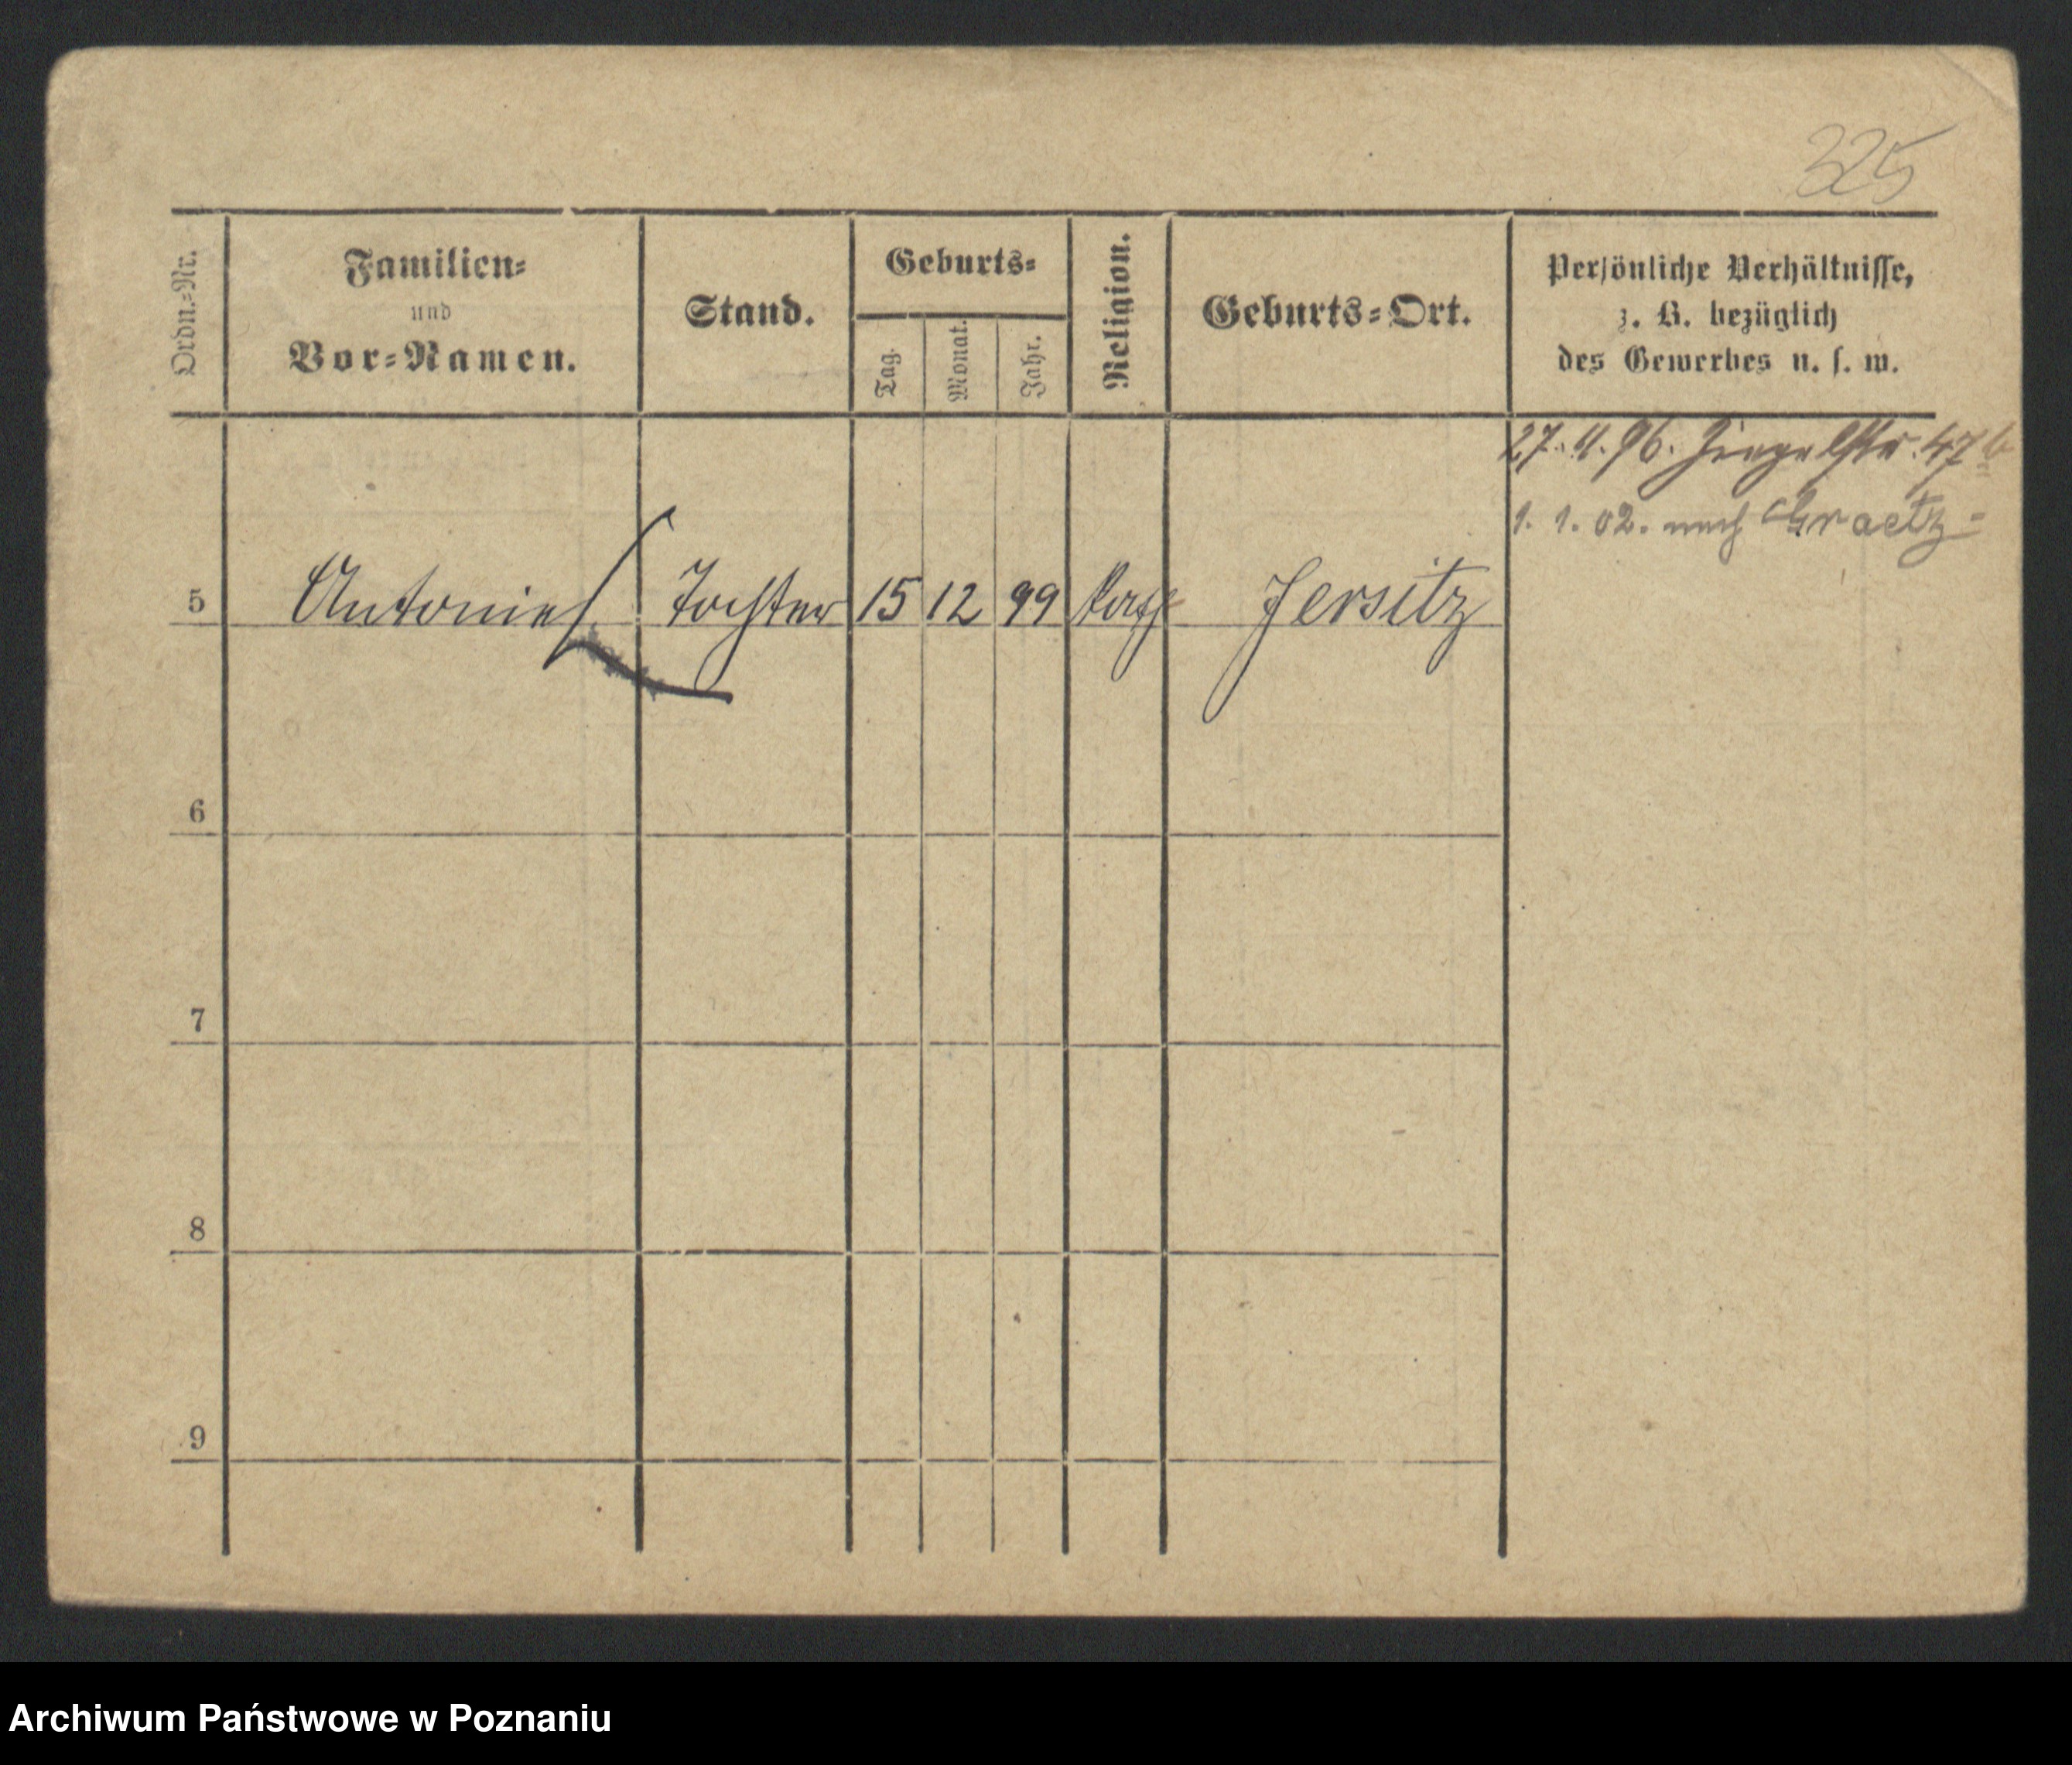 325
Ordn.=Nr.
Familien=
und
Vor=Namen.
Stand.
Geburts=
Tag.
Monat.
Jahr.
Religion.
Geburts=Ort.
Persönliche Verhältnisse,
z. B. bezüglich
des Gewerbes u. s. w.
27. 4. 96. Ziegelstr. 47b
1. 1. 02. nach Graetz
5 Antonie Tochter 15 12 99 kath Jersitz
6
7
8
9
Archiwum Państwowe w Poznaniu